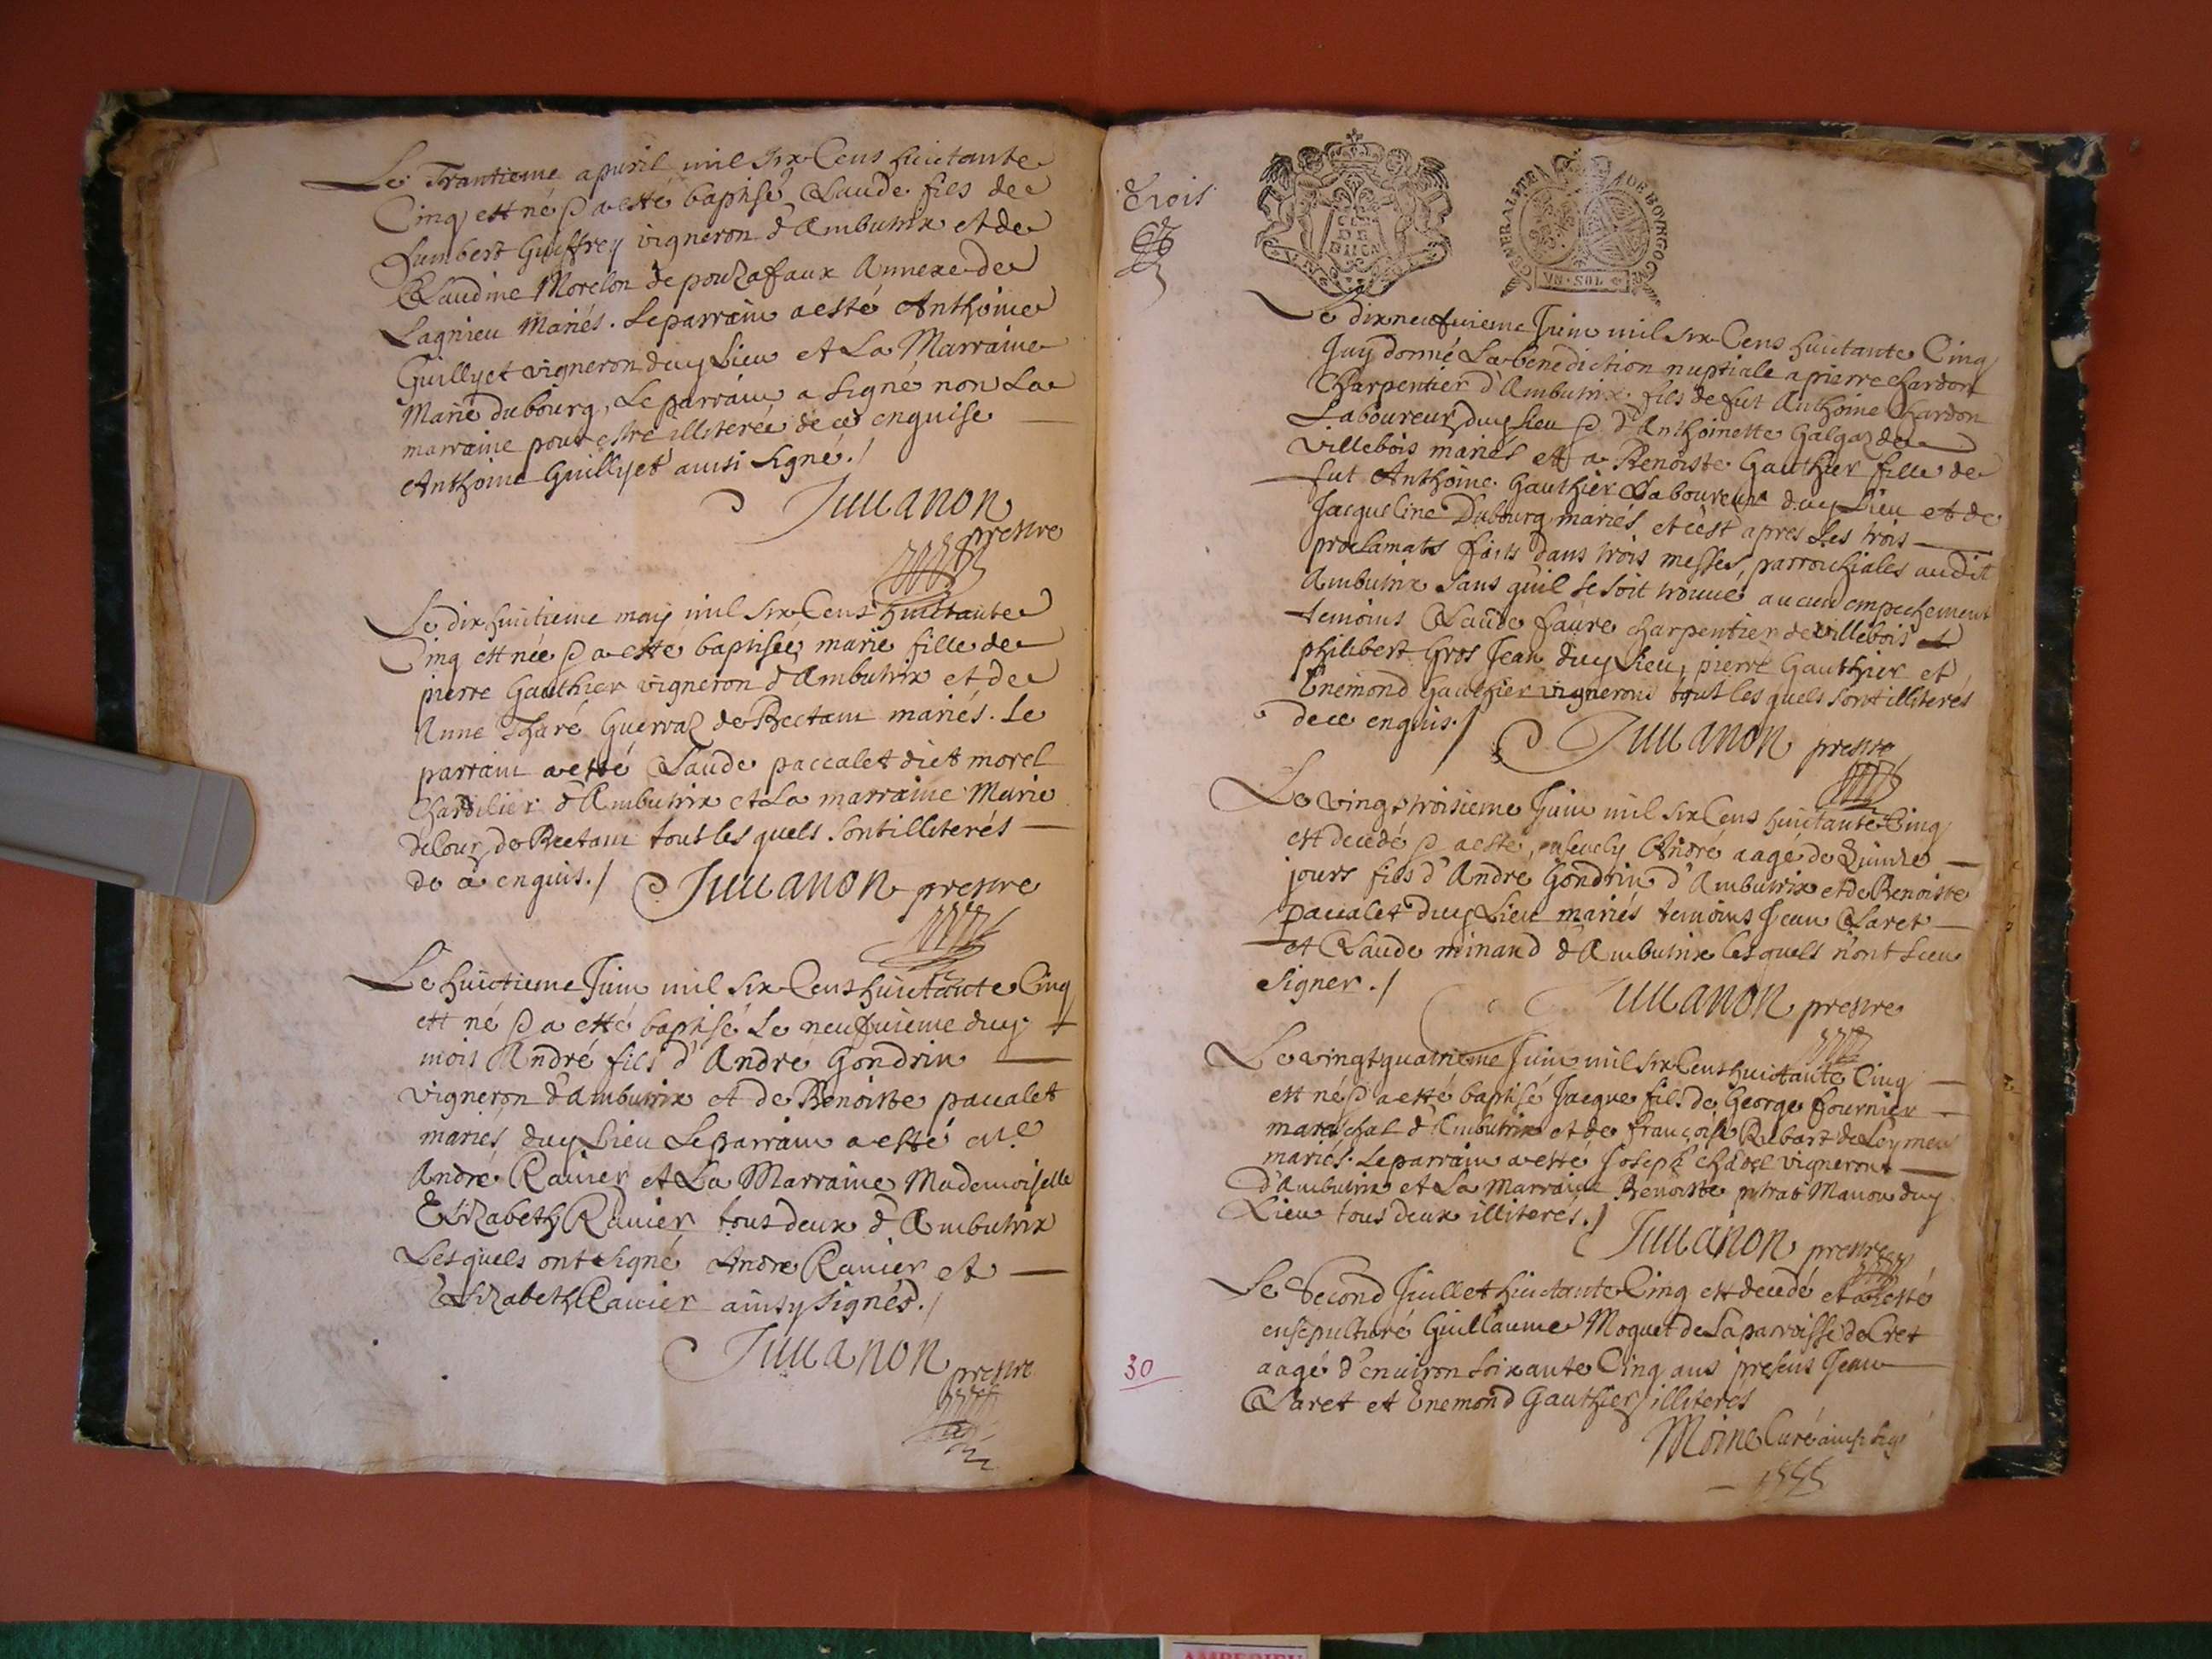 Le Trantieme apuril mil six Cens huictante
Cinq est né & a esté baptisé Claude fils de
Lambert Guiffrey vigneron d'Ambutrix et de
Claudine Morelon de pouzafaux Annexe de
Lagnieu Mariés. Le parrain a esté Anthoine
Guillyet vigneron duy Lieu et La Marraine
Marie dubourg, Le parrain a signé non La
marraine pour estre illiterée de ce enquise
Anthoine Guillyet ainsi signé./
Juuanon
prestre
Le dix huitieme may mil six Cens huictante
Cinq est née & a esté baptisée marie fille de
pierre Gauthier vigneron d'Ambutrix et de
Anne Tharé Guerraz de Bectam mariés. Le
parrain a esté Claude paccalet dict morel
d'Ambutrix et La marraine Marie
de Bectam tous les quels sont illiterés
de ce enquis./ Juuanon prestre
Le huictieme Juin mil six Cens huictante Cinq
est né & a esté baptisé Le neufuieme duy
mois André fils d'André Gondrin
vigneron d'Ambutrix et de Benoiste paccalet
mariés duy Lieu Le parrain a esté Me
André Rauier et La Marraine Mademoiselle
Elizabeth Rauier tous deux d'Ambutrix
Lesquels ont signé André Rauier et
Elizabeth Rauier ainsy signés./
Juuanon
prestre
trois
GENERALITE DE BOVRGOGNE
VN SOL
Le dix neufuieme Juin mil six Cens huictante Cinq
Jay donné La benediction nuptiale a pierre chardon
Charpentier d'Ambutrix fils de fut Anthoine chardon
Laboureur duy Lieu & d'Anthoinette Galgaz de
Villebois mariés et a Benoiste Gauthier fille de
fut Anthoine Gauthier Laboureur duy Lieu et de
Jacqueline Dubourg mariés et c'est apres Les trois
proclamats faits dans trois messes parroichiales audit
Ambutrix sans quil se soit trouué aucun empechement
temoins Claude faure charpentier de villebois et
philibert Gros Jean duy Lieu, pierre Gauthier et
Enemond Gauthier vignerons tous les quels sont illiterés
de ce enquis./ Juuanon prestre
Le vingt troisieme Juin mil six Cens huictante Cinq
est decedé & a esté enseuely André aagé de Quinze
jours fils d'André Gondrin d'Ambutrix et de Benoiste
paccalet duy Lieu mariés temoins Jean Claret
et Claude minand d'Ambutrix lesquels n'ont sceu
signer./
Juuanon prestre
Le vingt quatrieme Juin mil six Cens huictante Cinq
est né & a esté baptisé Jacque fils de George fournier
mareschal d'Ambutrix et de françoise Rubart de Leymen
mariés. Le parrain a esté Joseph vigneron
d'Ambutrix et La marraine Benoiste Manon duy
Lieu tous deux illiteres./ Juuanon prestre
Le Second Juillet huictante Cinq est decedé et a esté
ensepulturé Guillaume Moquet de La parroisse de Cret
aagé d'enuiron soixante Cinq ans presens Jean
Claret et Enemond Gauthier illiteres
Moine Curé ainsi signé
30
AMBERIEU